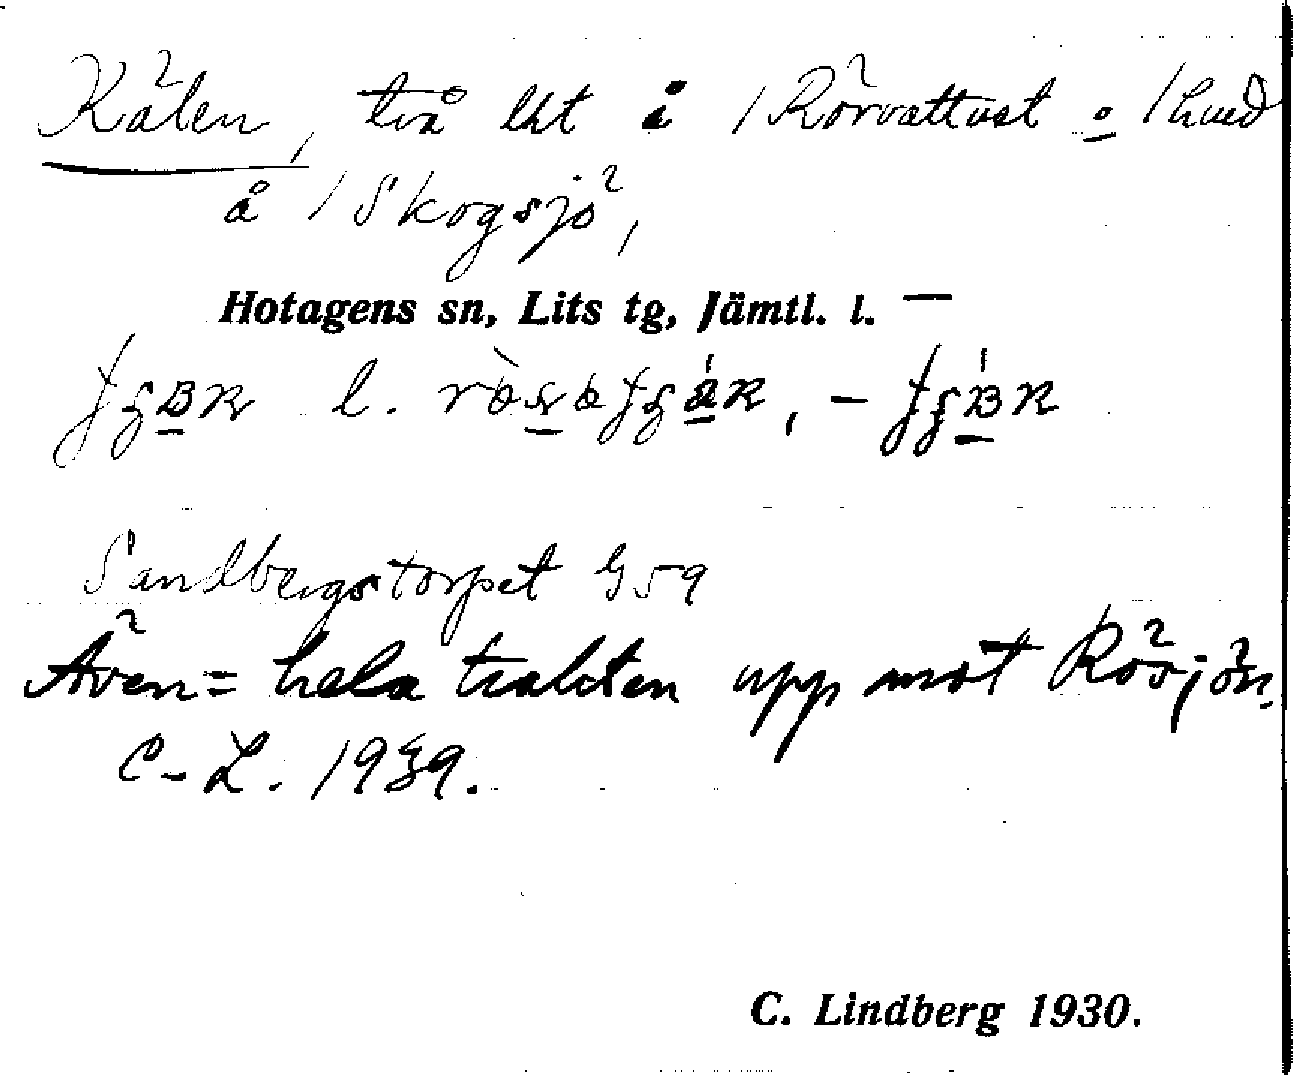 Kälen, två lht å /Rörvattnet o /hmd
å /Skogsjö,
Hotagens sn, Lits tg, Jämtl. l. —
l.
Sandbergstorpet G59
Även = hela trakten upp mot Rösjön.
C-L. 1939.
C. Lindberg 1930.